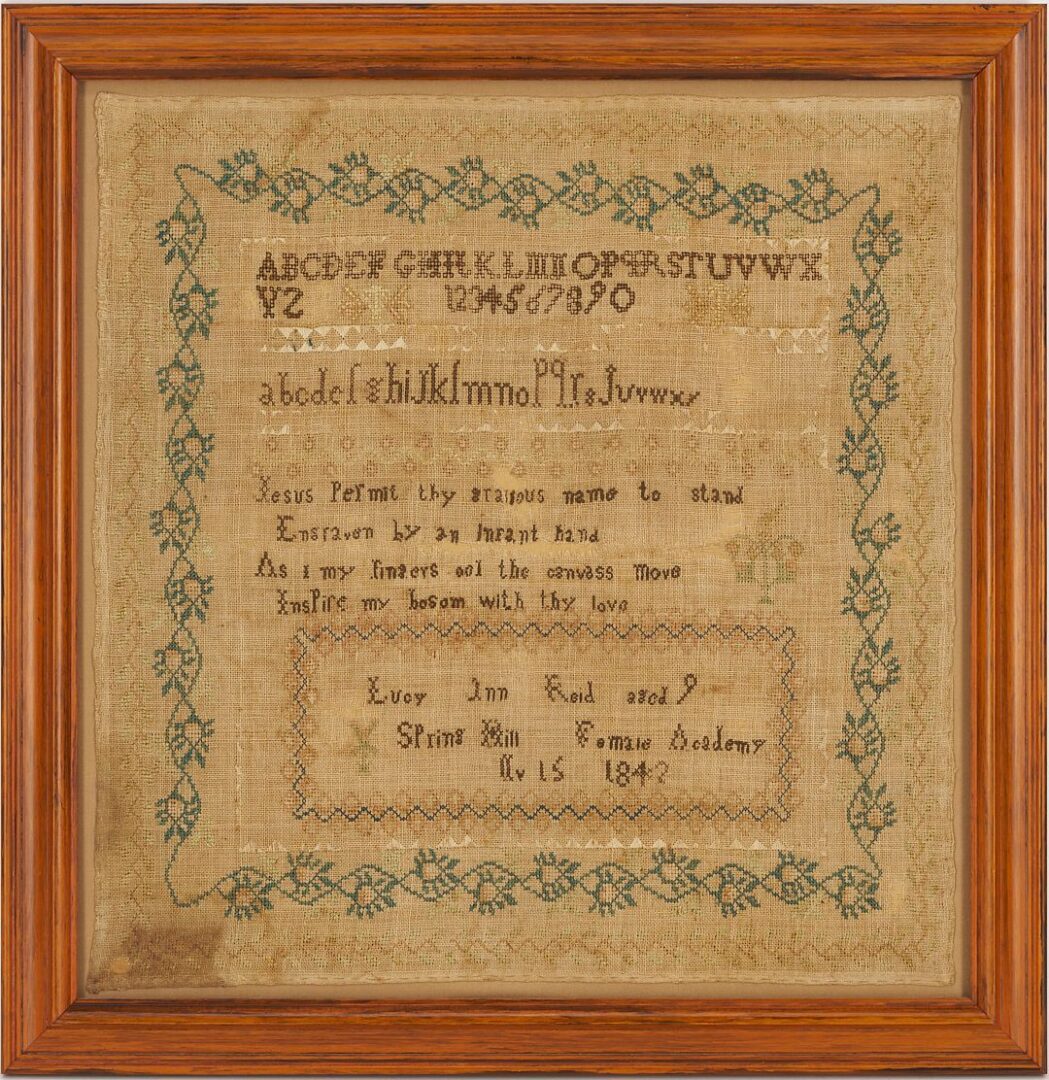 ABCDEF GHIJKLMN OPQRSTUVWX
YZ 1234567890
abcdefghijklmnopqrsſuvwxy
Jesus Permit thy gracious name to stand
Engraven by an infant hand
As i my fingers oer the canvass move
Inspire my bosom with thy love
Lucy Ann Reid aged 9
Spring Hill Female Academy
Nv 15 1842